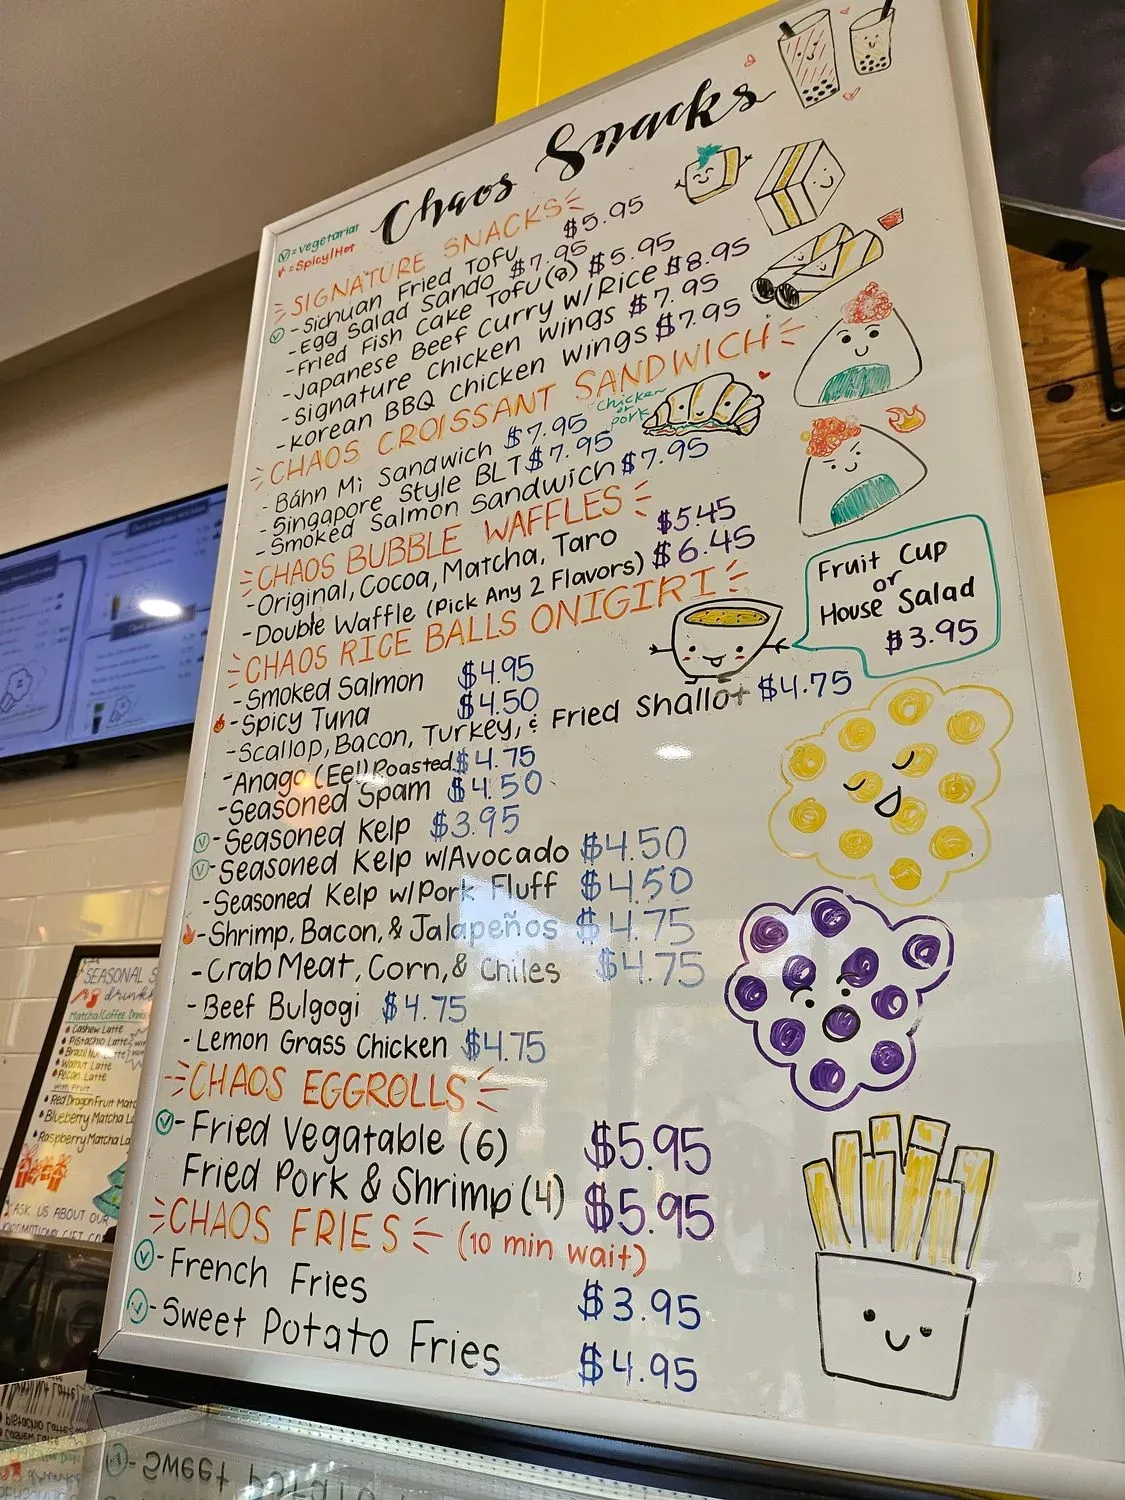 Chaos Snacks
Ⓥ=vegetarian
=Spicy/Hot
SIGNATURE SNACKS
Ⓥ - Sichuan Fried Tofu $5.95
- Egg Salad Sando $7.95
- Fried Fish Cake Tofu (8) $5.95
- Japanese Beef Curry w/Rice $8.95
- Signature Chicken Wings $7.95
- Korean BBQ Chicken Wings $7.95
CHAOS CROISSANT SANDWICH
chicken
or
pork
- Báhn Mì Sandwich $7.95
- Singapore Style BLT $7.95
- Smoked Salmon Sandwich $7.95
CHAOS BUBBLE WAFFLES
- Original, Cocoa, Matcha, Taro $5.45
- Double Waffle (Pick Any 2 Flavors) $6.45
Fruit Cup
or
House Salad
$3.95
CHAOS RICE BALLS ONIGIRI
- Smoked Salmon $4.95
- Spicy Tuna $4.50
- Scallop, Bacon, Turkey, & Fried Shallot $4.75
- Anago (Eel) Roasted $4.75
- Seasoned Spam $4.50
Ⓥ - Seasoned Kelp $3.95
Ⓥ - Seasoned Kelp w/Avocado $4.50
- Seasoned Kelp w/Pork Fluff $4.50
- Shrimp, Bacon, & Jalapeños $4.75
- Crab Meat, Corn, & Chiles $4.75
- Beef Bulgogi $4.75
- Lemon Grass Chicken $4.75
CHAOS EGGROLLS
Ⓥ - Fried Vegatable (6) $5.95
Fried Pork & Shrimp (4) $5.95
CHAOS FRIES (10 min wait)
Ⓥ - French Fries $3.95
Ⓥ - Sweet Potato Fries $4.95
SEASONAL
drink
Matcha/Coffee Drinks
Cashew Latte
Pistachio Latte
Brazil Nut
Walnut Latte
Pecan Latte
with Fruit
Red Dragon Fruit
Blueberry Matcha
Raspberry Matcha
ASK US ABOUT OUR